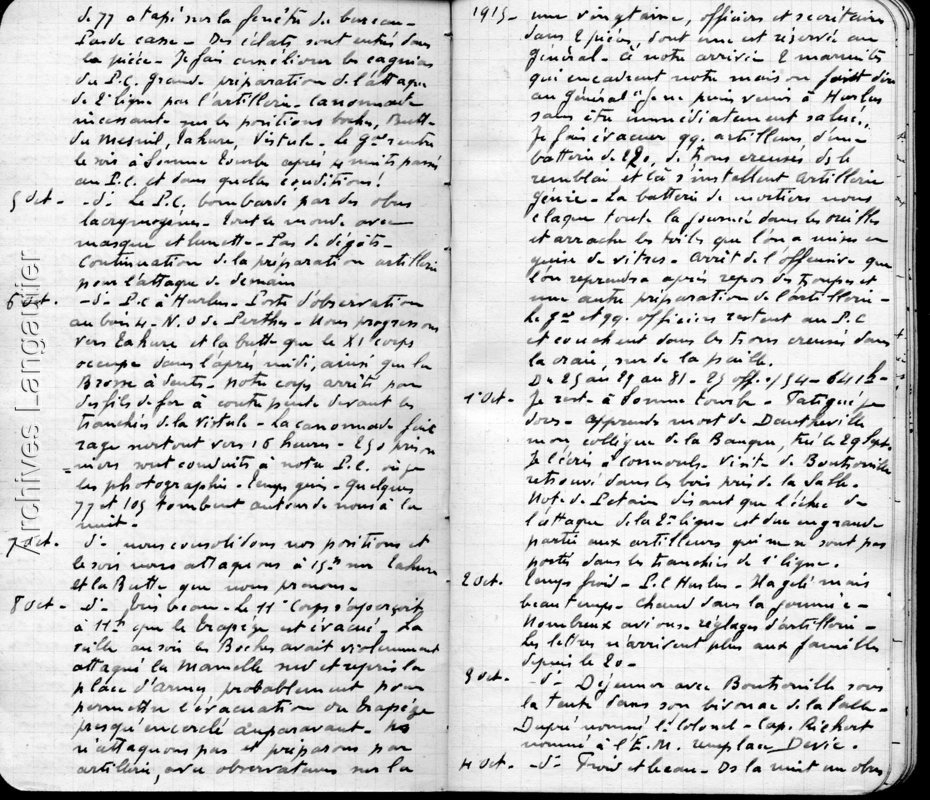 de 77 a tapé sur la fenêtre du bureau -
Pas de casse - Des éclats sont entrés dans
la pièce - Je fais améliorer les cagnias
du P.C. Grande préparation de l'attaque
de 2e ligne par l'artillerie - Canonnade
incessante sur les positions boches, Butte
du Mesnil, Tahure, Vistule - Le Gal rentre
le soir à Somme Tourbe après 4 nuits passées
au P.C. et dans quelles conditions!
5 Oct - -d- Le P.C. bombardé par des obus
lacrymogènes - Tout le monde avec
masque et lunettes - Pas de dégâts -
Continuation de la préparation artillerie
pour l'attaque de demain
6 Oct. - -d- P.C. à Hurlus - Poste d'observation
au bois 4 - N.O de Perthes - Nous progressons
vers Tahure et la butte que le XI corps
occupe dans l'après midi, ainsi que la
Brosse à dents - Notre corps arrêté par
des fils de fer à contre pente devant les
tranchées de la Vistule - La canonnade fait
rage surtout vers 16 heures - 250 prison
niers sont conduits à notre P.C. où je
les photographie - Temps gris - Quelques
77 et 105 tombent autour de nous à la
nuit -
7 Oct. - d- nous consolidons nos positions et
le soir nous attaquons à 15h sur Tahure
et la Butte que nous prenons -
8 Oct - -d- Gris beau - Le 11e Corps s'aperçoit
à 11h que le Trapèze est évacué - La
veille au soir les Boches avait violemment
attaqué la Mamelle sud et repris la
place d'armes, probablement pour
permettre l'évacuation du Trapèze
presqu'encerclé auparavant - Ns
n'attaquons pas et préparons par
artillerie, avec observateurs sur la
1915 - une vingtaine, officiers et secrétaires
dans 2 pièces, dont une est réservée au
Général - à notre arrivée 2 marmites
qui encadrent notre maison font dire
au Général "Je ne puis venir à Hurlus
sans être immédiatement salué"..
Je fais évacuer qq. artilleurs, d'une
batterie de 220, de trous creusés ds le
remblai et là s'installent artillerie
génie - La batterie de mortiers nous
claque toute la journée dans les oreilles
et arrache les toiles que l'on a mises en
guise de vitres - Arrêt de l'offensive que
l'on reprendra après repos des troupes et
une autre préparation de l'artillerie -
Le Gal et qq. officiers restent au P.C
et couchent dans les trous creusés dans
la craie, sur de la paille.
Du 25 au 29 au 81 - 25 off. / 54 - 641 h -
1 Oct - Je reste à Somme Tourbe - Fatigué je
dors - apprends mort de
mon collègue de la Banque, tué le 29 Sept.
Je l'écris à - Visite de Bouthorville
retrouvé dans les bois près de la Salle -
Note de Pétain disant que l'échec de
l'attaque de la 2e ligne est due en grande
partie aux artilleurs qui ne se sont pas
portés dans les tranchées de 1e ligne.
2 Oct. Temps froid - P.C Hurlus - Il a gelé mais
beau temps - Chaud dans la journée -
Nombreux avions - réglages d'artillerie -
Les lettres n'arrivent plus aux familles
depuis le 20 -
3 Oct. - -d- Déjeuner avec Bouthorville sous
la tente dans son bivouac de la Salle -
Dupré nommé Lt Colonel - Cap. Richert
nommé à l'E.M. remplace Devic.
4 Oct. - -d- Froid et beau - Ds la nuit un obus
Archives Langanier